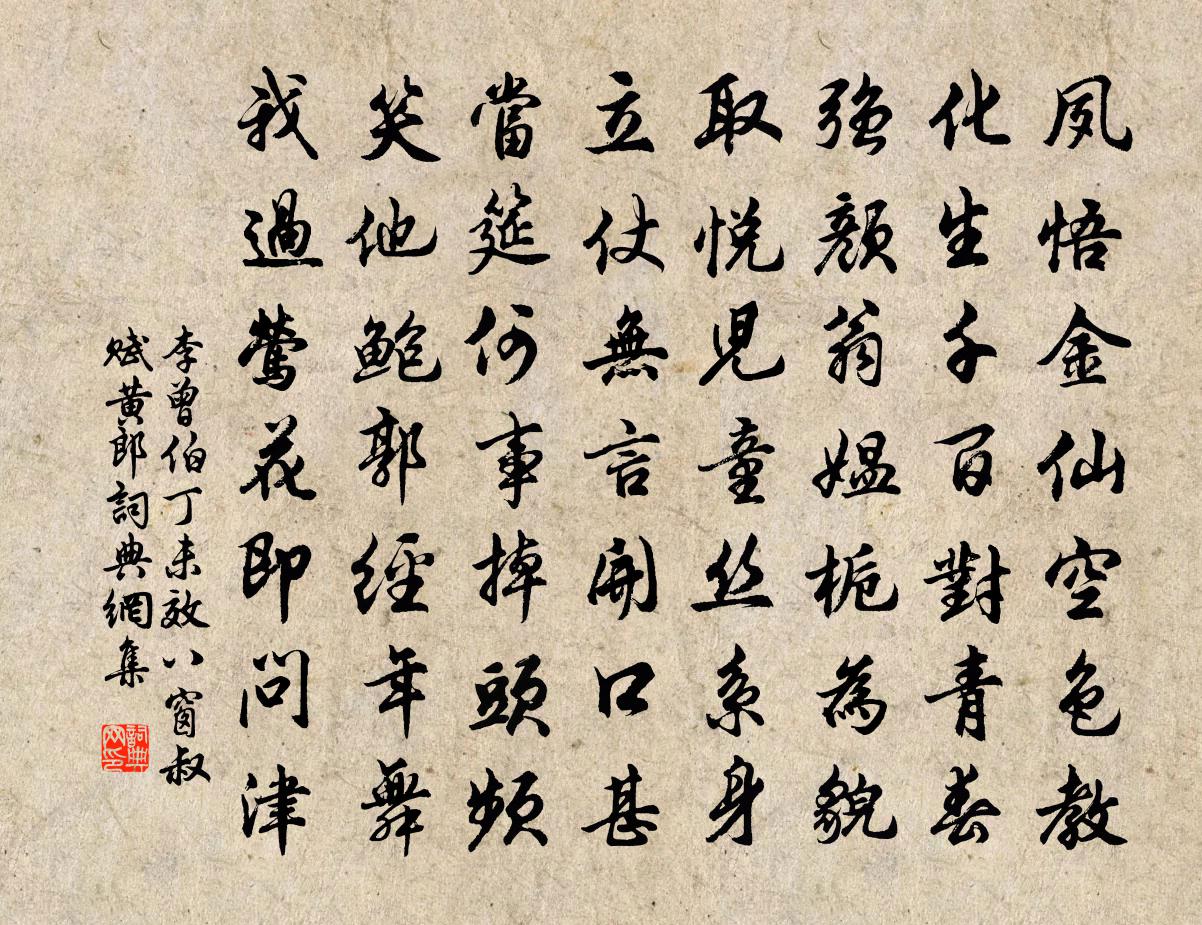 夙悟金仙空色教
化生千百對青春
強顏翁媼梔為貌
取悅兒童丝系身
立仗無言開口甚
當筵何事掉頭頻
笑他鮑郭經年舞
我過鶯花即問津
李曾伯丁未效八窗叔
賦黃郎詞典網集
詞典網印